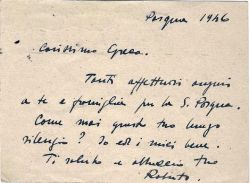 Pasqua 1946
Carissimo Greco.
Tanti affettuosi auguri
a te e famiglia per la S. Pasqua.
Come mai questo tuo lungo
silenzio? Io ed i miei bene.
Ti saluto e abbraccio tuo
Roberto.